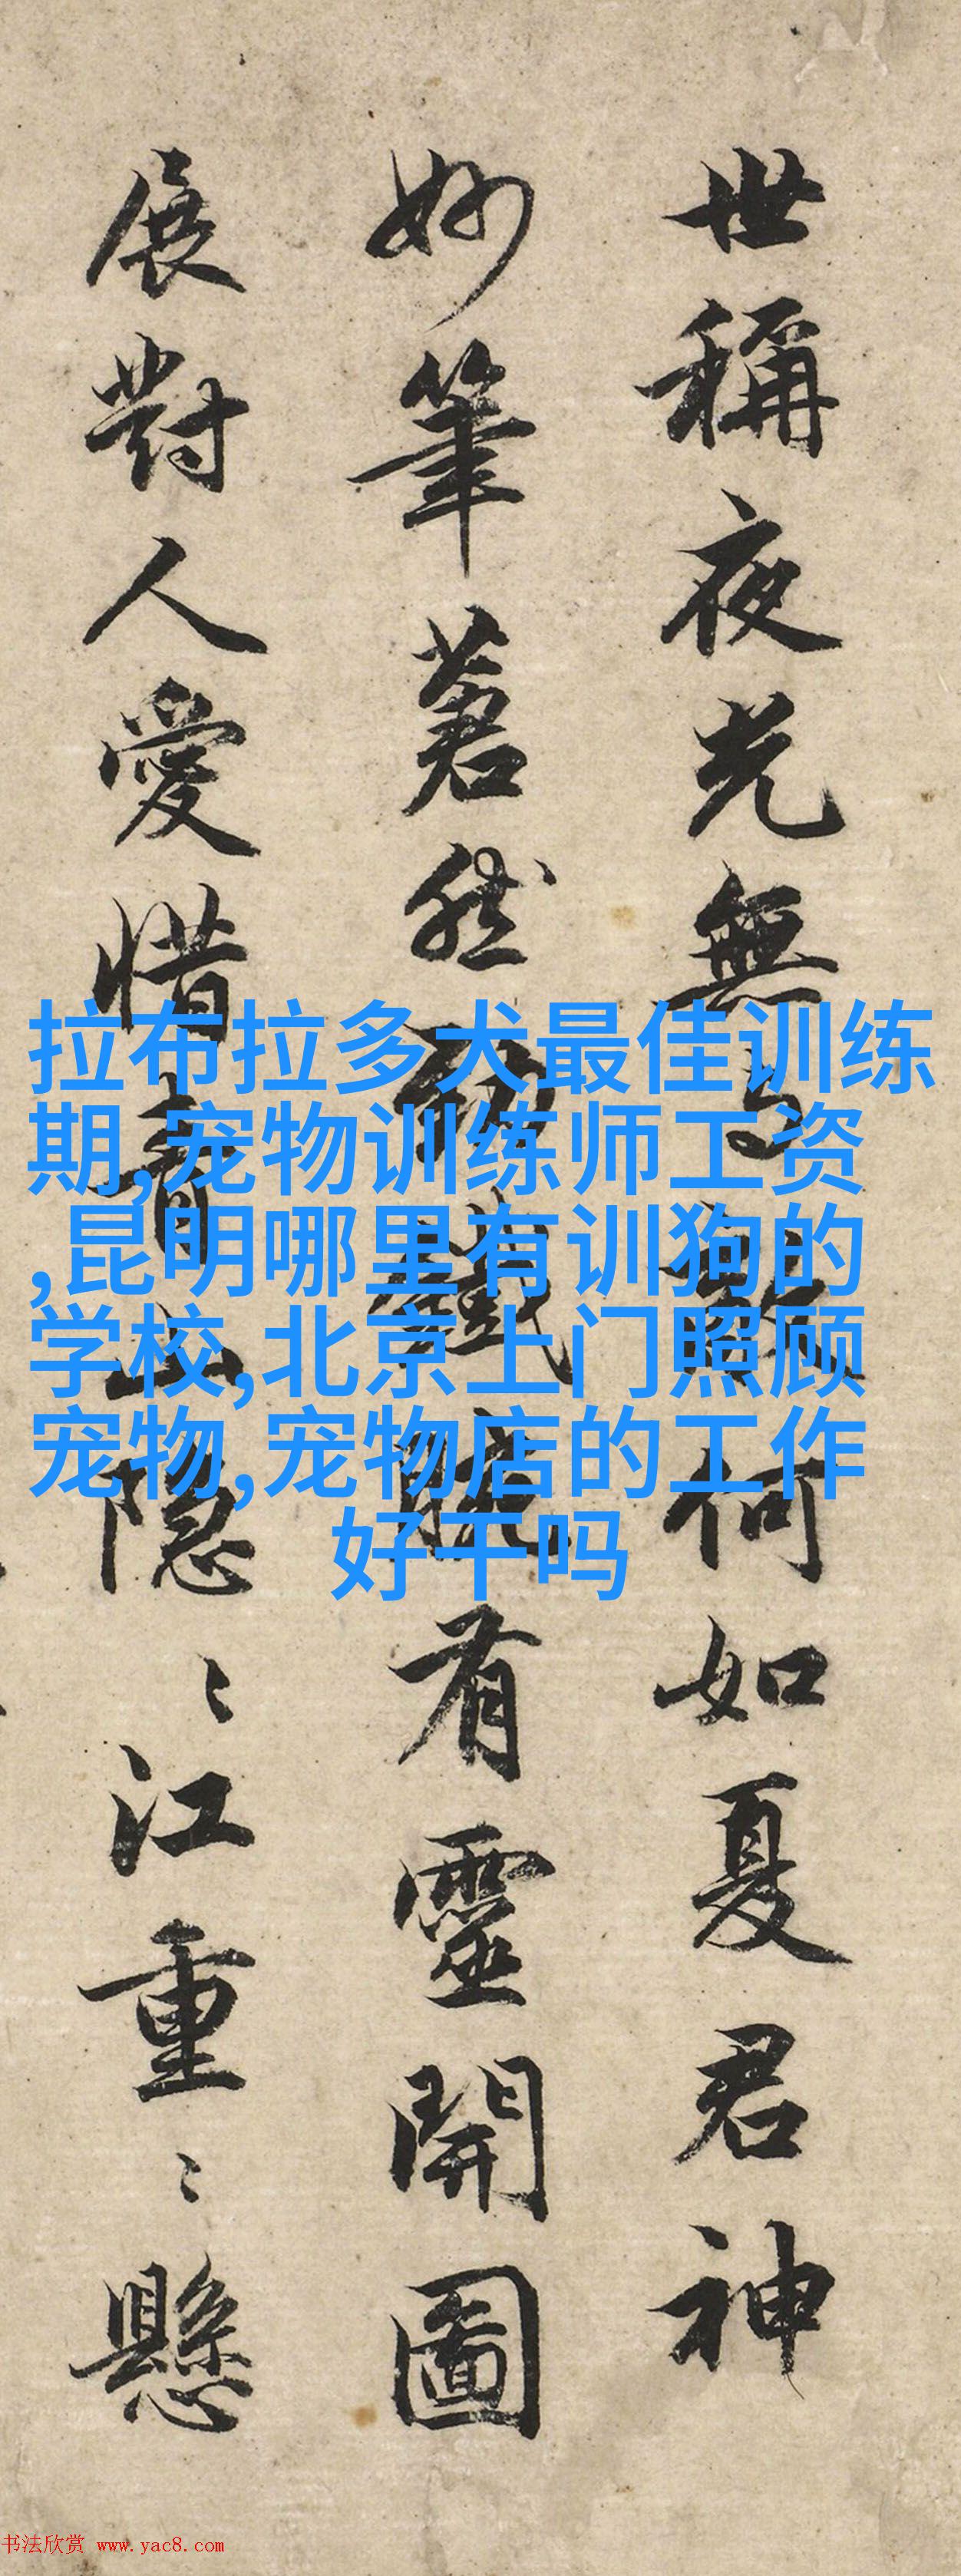 世稱夜光無與敵何如夏君神
妙筆莙然 鐵 有靈開圖
展對人愛惜青山隐〻江重〻懸
拉布拉多犬最佳训练
期,宠物训练师工资
,昆明哪里有训狗的
学校,北京上门照顾
宠物,宠物店的工作
好干吗
书法欣赏 www.yac8.com